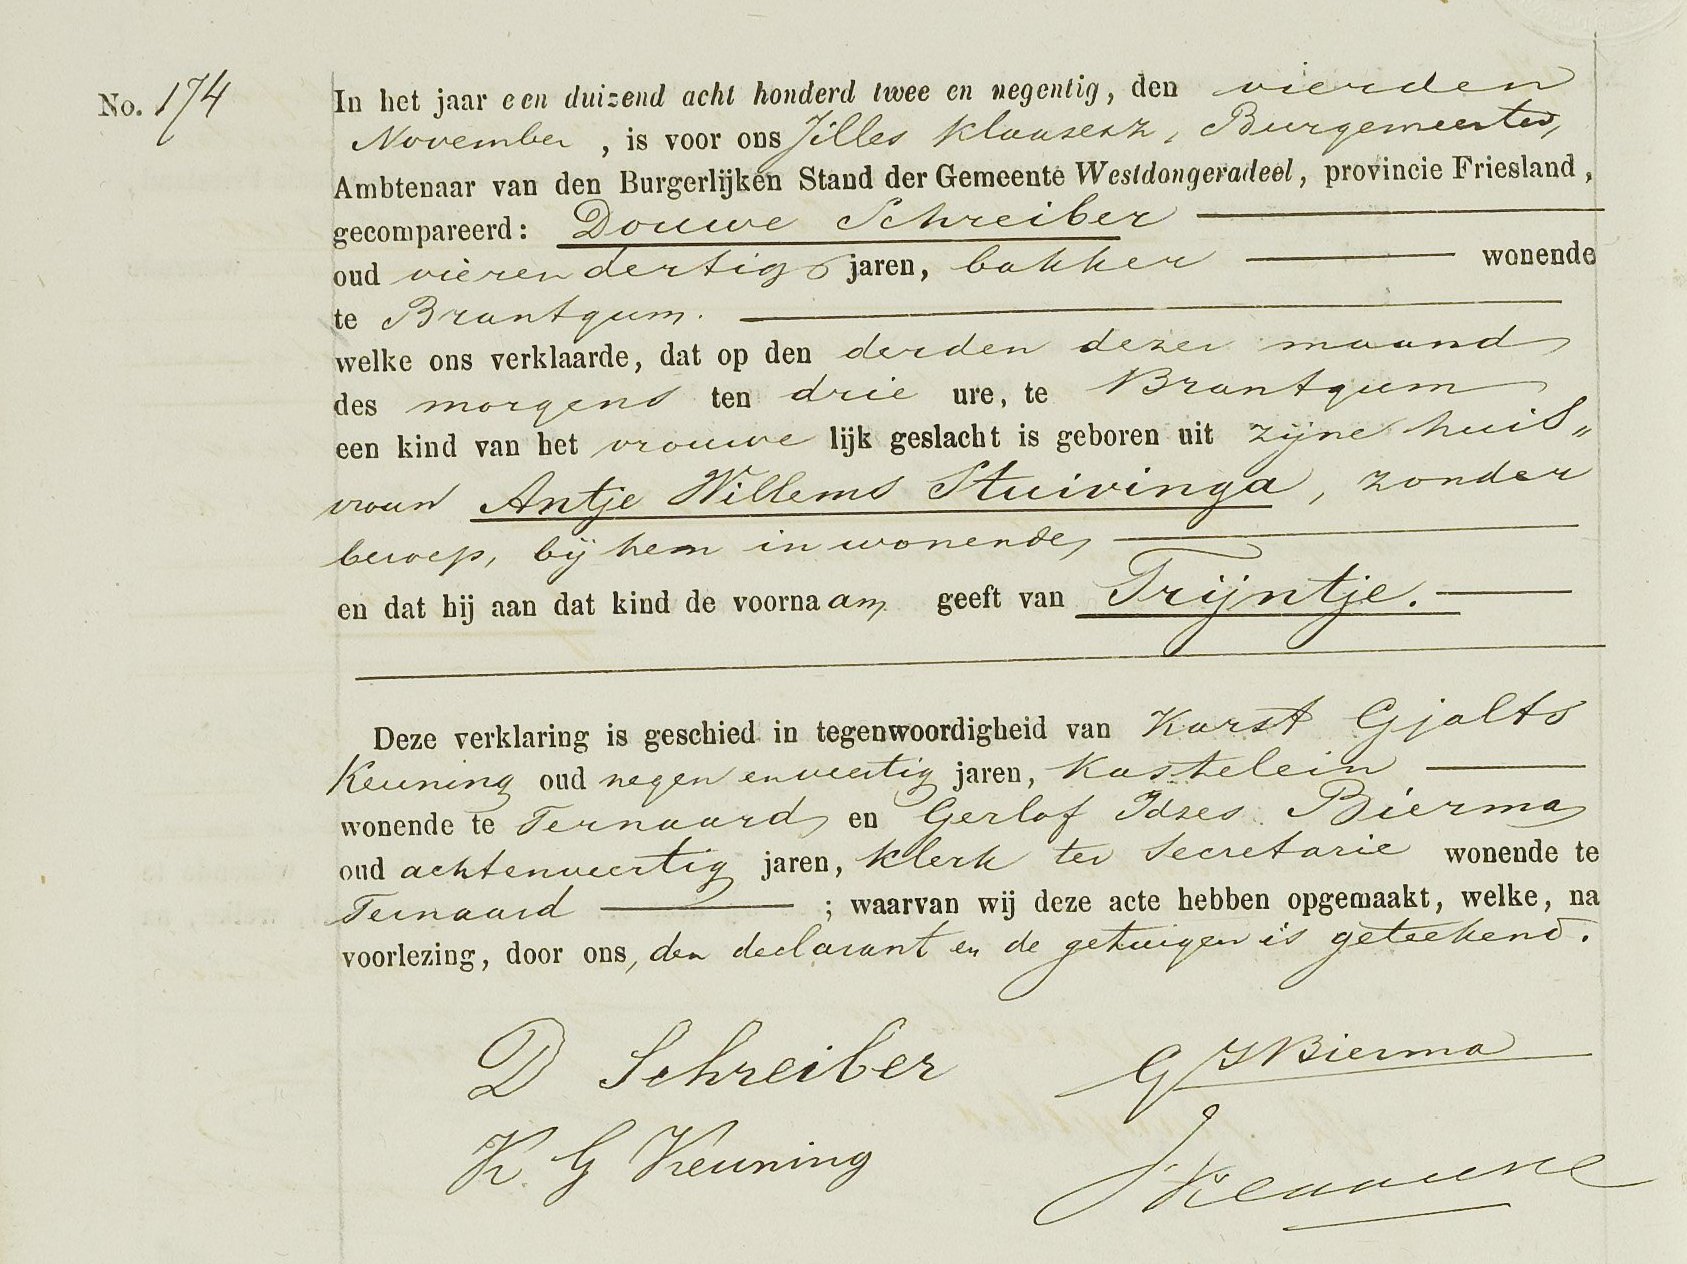 No. 174
In het jaar een duizend acht honderd twee en negentig, den vierden
November, is voor ons Jilles Klaasesz, Burgemeester,
Ambtenaar van den Burgerlijken Stand der Gemeente Westdongeradeel, provincie Friesland,
gecompareerd: Douwe Schreiber
oud vierendertig jaren, bakker wonende
te Brantgum.
welke ons verklaarde, dat op den derden dezer maand
des morgens ten drie ure, te Brantgum
een kind van het vrouwelijk geslacht is geboren uit zijne huis„
vrouw Antje Willems Stuivinga, zonder
beroep, bij hem inwonende,
en dat hij aan dat kind de voornaam geeft van Trijntje.
Deze verklaring is geschied in tegenwoordigheid van Karst Gjalts
Keuning oud negenenveertig jaren, Kastelein
wonende te Ternaard en Gerlof Idses Bierma
oud achtenveertig jaren, klerk ter Secretarie wonende te
Ternaard ; waarvan wij deze acte hebben opgemaakt, welke, na
voorlezing, door ons, den declarant en de getuigen is geteekend.
D Schreiber
G I Bierma
K. G Keuning